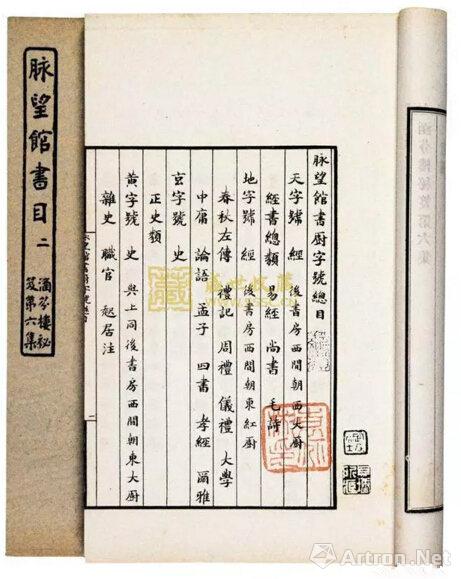 脉望館書目 二
涵芬樓秘
笈第六集
脉望館書廚字號總目
天字號 經 後書房西間朝西大廚
經書總類 易經 尚書 毛詩
地字號 經 後書房西間朝東紅廚
春秋左傳 禮記 周禮 儀禮 大學
中庸 論語 孟子 四書 孝經 爾雅
玄字號 史
正史類
黄字號 史 與上同後書房西間朝東大廚
雜史 職官 起居注
二
Artron.Net